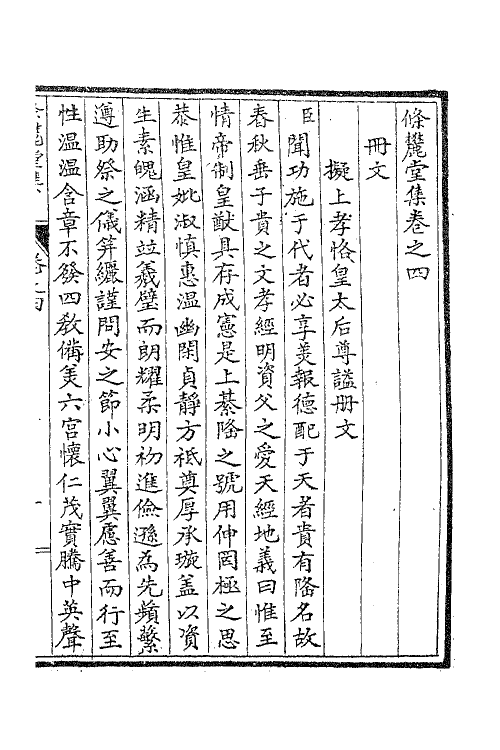 條麓堂集卷之四
冊文
擬上孝恪皇太后尊謚册文
臣聞功施于代者必享羙報德配于天者貴有隆名故
春秋垂子貴之文孝經明資父之愛天經地義曰惟至
情帝制皇猷具存成憲是上綦隆之號用伸罔極之思
恭惟皇妣淑慎惠温幽閑貞靜方袛奠厚承璇盖以資
生素魄涵精竝羲璧而朗耀柔明礽進儉遜為先蘋蘩
遵助祭之儀笄纚謹問安之節小心翼翼慮善而行至
性温温含章不發四敎備羙六宫懷仁茂實騰中英聲